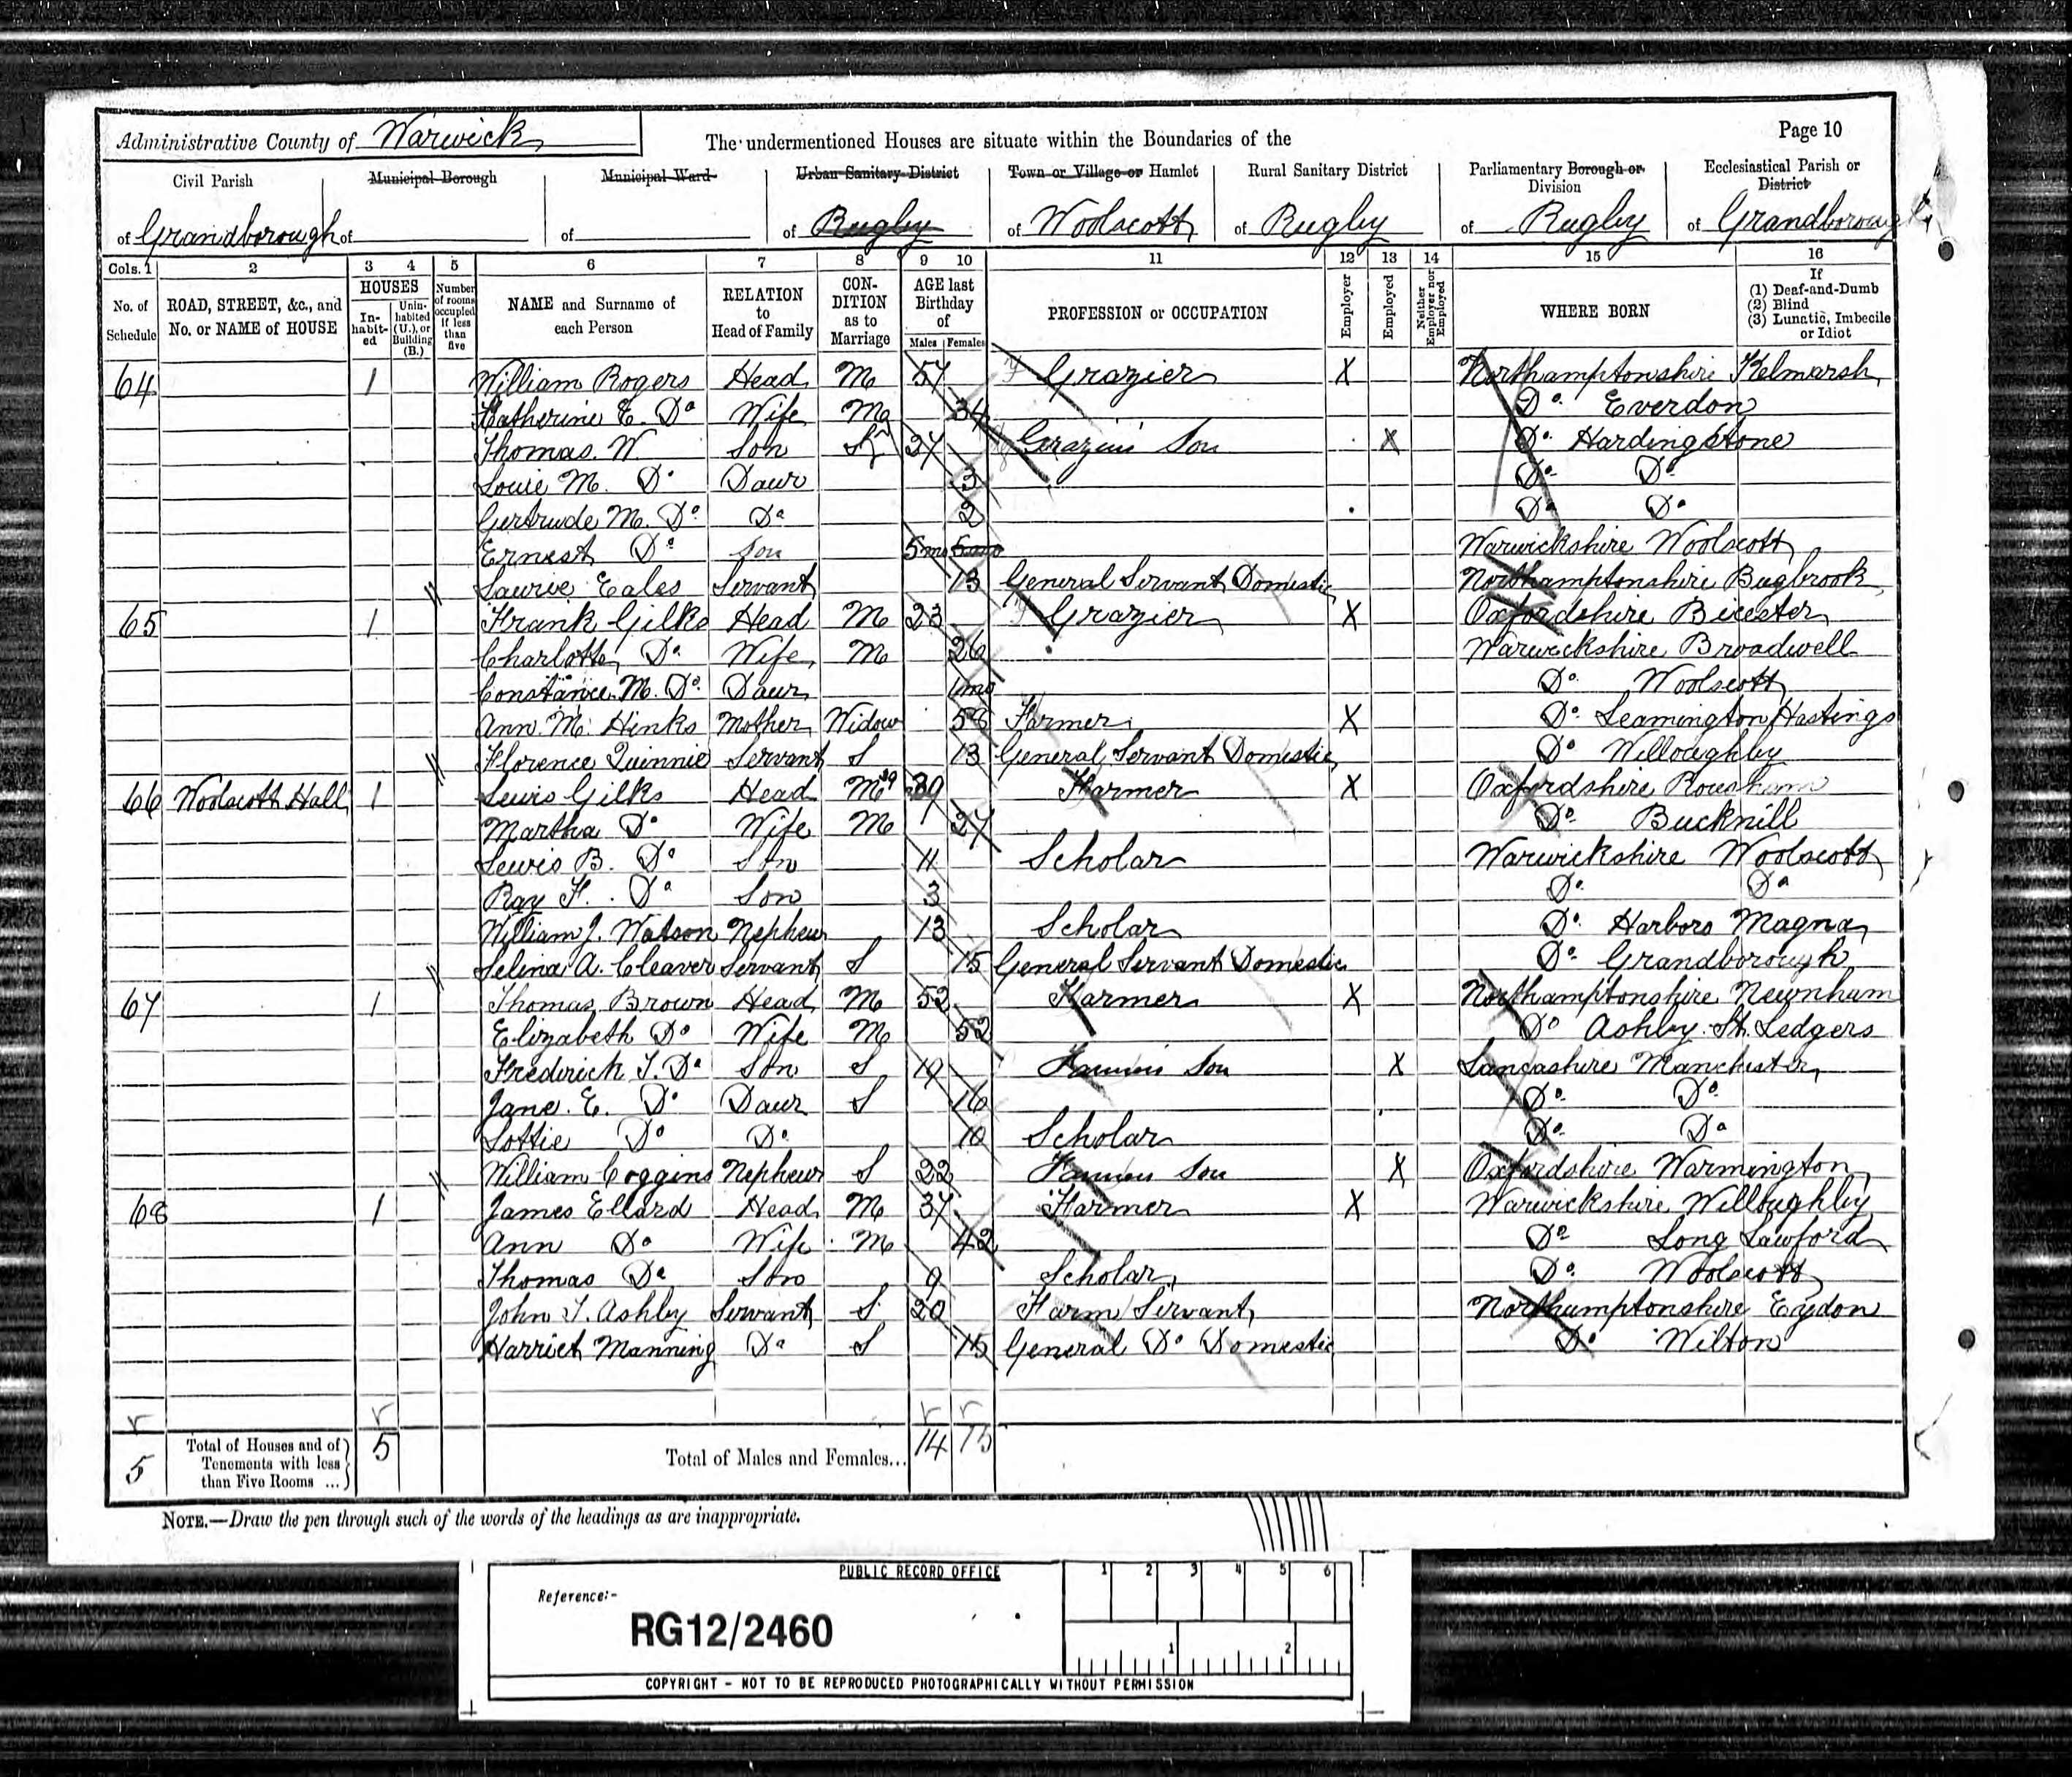 Administrative County of Warwick
The undermentioned Houses are situate within the Boundaries of the
Page 10
Civil Parish of Grandborough
Municipal Borough of
Municipal Ward of
Urban Sanitary District of Rugby
Town or Village or Hamlet of Woolscott
Rural Sanitary District of Rugby
Parliamentary Borough or Division of Rugby
Ecclesiastical Parish or District of Grandborough
Cols. 1 2 3 4 5 6 7 8 9 10 11 12 13 14 15 16
No. of Schedule
ROAD, STREET, &c., and No. or NAME of HOUSE
HOUSES
In-habit-ed
Unin-habited (U.), or Building (B.)
Number of rooms occupied if less than five
NAME and Surname of each Person
RELATION to Head of Family
CON-DITION as to Marriage
AGE last Birthday of
Males Females
PROFESSION or OCCUPATION
Employer
Employed
Neither Employer nor Employed
WHERE BORN
If
(1) Deaf-and-Dumb
(2) Blind
(3) Lunatic, Imbecile or Idiot
64 1 William Rogers Head M 57 Grazier X Northamptonshire Kelmarsh
Katherine E. Do Wife M 34 Do Everdon
Thomas W. Son S 27 Grazier's Son X Do Hardingstone
Louie M. Do Daur 3 Do Do
Gertrude M. Do Do 2 Do Do
Ernest Do Son 5mo 5mo Warwickshire Woolscott
Laurie Eales Servant 13 General Servant Domestic Northamptonshire Bugbrook
65 1 Frank Gilks Head M 23 Grazier X Oxfordshire Bicester
Charlotte Do Wife M 26 Warwickshire Broadwell
Constance M. Do Daur 1mo Do Woolscott
Ann M. Hinks Mother Widow 58 Farmer X Do Leamington Hastings
Florence Quinnie Servant S 13 General Servant Domestic Do Willoughby
66 Woolscott Hall 1 Lewis Gilks Head M 39 Farmer X Oxfordshire Rousham
Martha Do Wife M 37 Do Bucknill
Lewis B. Do Son 11 Scholar Warwickshire Woolscott
Ray F. Do Son 3 Do Do
William J. Watson Nephew 13 Scholar Do Harboro Magna
Selina A. Cleaver Servant S 15 General Servant Domestic Do Grandborough
67 1 Thomas Brown Head M 52 Farmer X Northamptonshire Newnham
Elizabeth Do Wife M 52 Do Ashby St. Ledgers
Frederick T. Do Son S 19 Farmers Son X Lancashire Manchester
Jane E. Do Daur S 16 Do Do
Lottie Do Do 10 Scholar Do Do
William Coggins Nephew S 22 Farmers Son X Oxfordshire Warmington
68 1 James Ellard Head M 37 Farmer X Warwickshire Willoughby
Ann Do Wife M 42 Do Long Lawford
Thomas Do Son 9 Scholar Do Woolscott
John T. Ashby Servant S 20 Farm Servant Northamptonshire Eydon
Harriet Manning Do S 15 General Do Domestic Do Wilton
5 Total of Houses and of Tenements with less than Five Rooms ... 5 Total of Males and Females... 14 15
NOTE.—Draw the pen through such of the words of the headings as are inappropriate.
PUBLIC RECORD OFFICE
1 2 3 4 5 6
Reference:-
RG12/2460
1 2
COPYRIGHT - NOT TO BE REPRODUCED PHOTOGRAPHICALLY WITHOUT PERMISSION